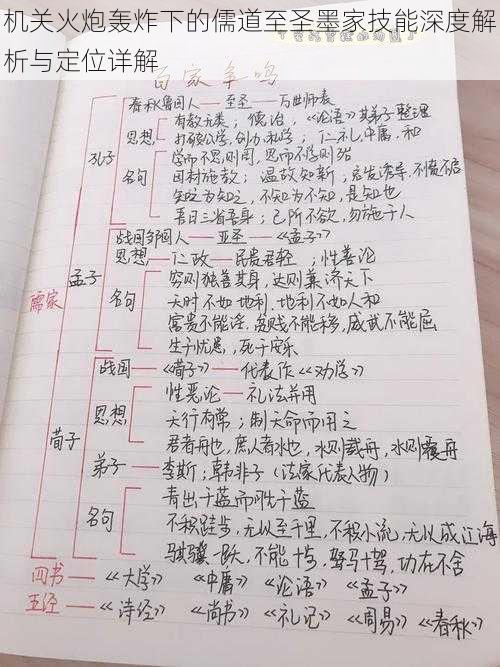 机关火炮轰炸下的儒道至圣墨家技能深度解
析与定位详解
百家争鸣
春秋鲁国人——至圣——万世师表
孔子
思想
有教无类；德治，《论语》其弟子整理
打破公学，创办私学；仁礼，中庸，和
名句
学而不思则罔，思而不学则殆
因材施教；温故知新；启发诱导，不愤不启
知之为知之，不知为不知，是知也
吾日三省吾身；己所不欲，勿施于人
儒家
孟子
战国邹国人——亚圣——《孟子》
思想——仁政——民贵君轻；性善论
名句
穷则独善其身，达则兼济天下
天时不如地利，地利不如人和
富贵不能淫，贫贱不能移，威武不能屈
生于忧患，死于安乐
荀子
战国——《荀子》——代表作《劝学》
思想
性恶论——礼法并用
天行有常；制天命而用之
君者舟也，庶人者水也，水则载舟，水则覆舟
弟子——李斯；韩非子（法家代表人物）
名句
青出于蓝而胜于蓝
不积跬步，无以至千里，不积小流，无以成江海
骐骥一跃，不能十步，驽马十驾，功在不舍
四书——《大学》 《中庸》 《论语》 《孟子》
五经——《诗经》 《尚书》 《礼记》 《周易》 《春秋》